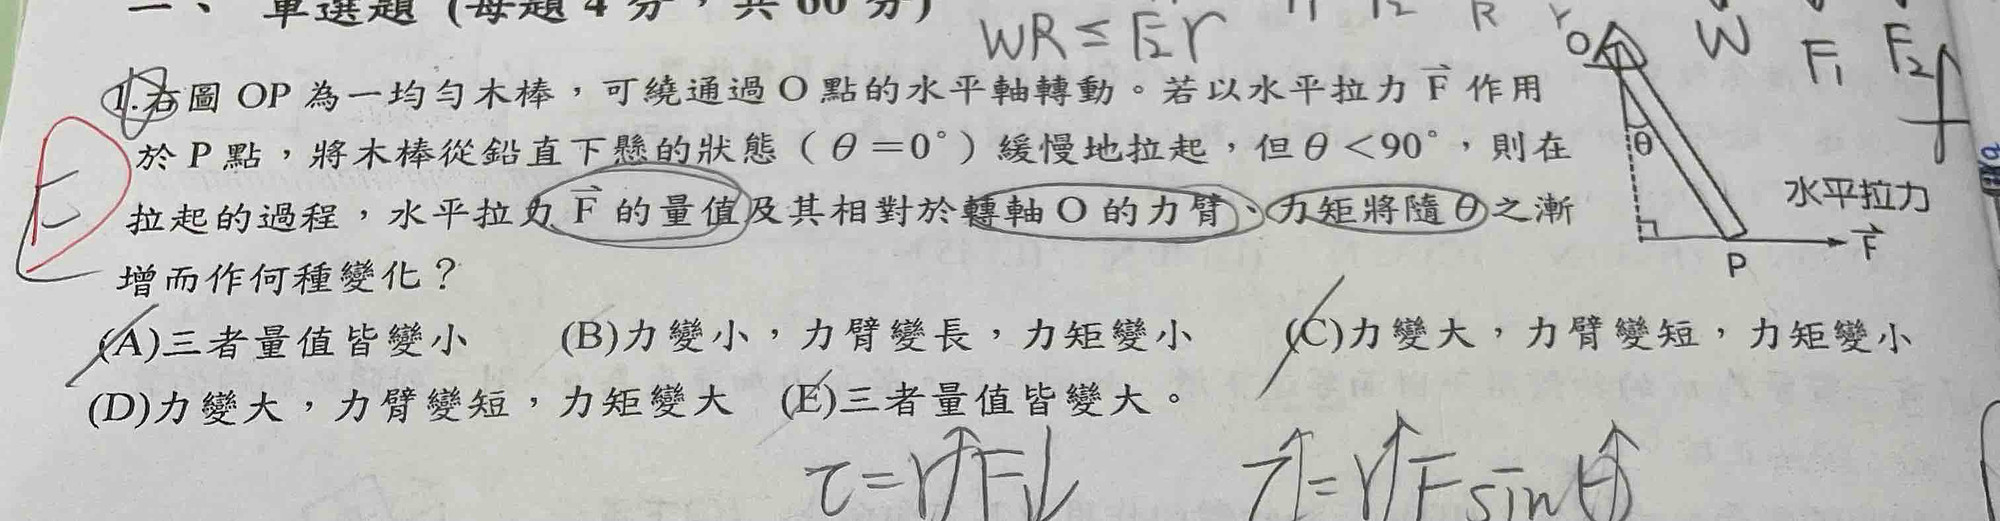 一、單選題(每題4分,共60分)
WR ≤ F₂r
R
r
W F₁ F₂
1.右圖 OP 為一均勻木棒,可繞通過 O 點的水平軸轉動。若以水平拉力 F⃗ 作用
於 P 點,將木棒從鉛直下懸的狀態(θ=0°)緩慢地拉起,但 θ<90°,則在
拉起的過程,水平拉力 F⃗ 的量值及其相對於轉軸 O 的力臂、力矩將隨 θ 之漸
增而作何種變化?
E
O
θ
水平拉力
F⃗
P
(A)三者量值皆變小 (B)力變小,力臂變長,力矩變小 (C)力變大,力臂變短,力矩變小
(D)力變大,力臂變短,力矩變大 (E)三者量值皆變大。
τ=r↑F↓ τ↑=r↑F sinθ↑